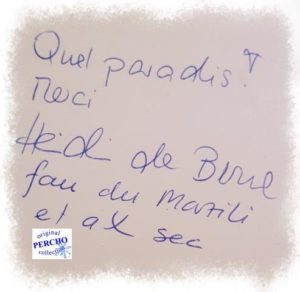 Quel paradis!
Merci
Heidi de Berne
fan du Marzili
et al sec
original
PERCHO
collection